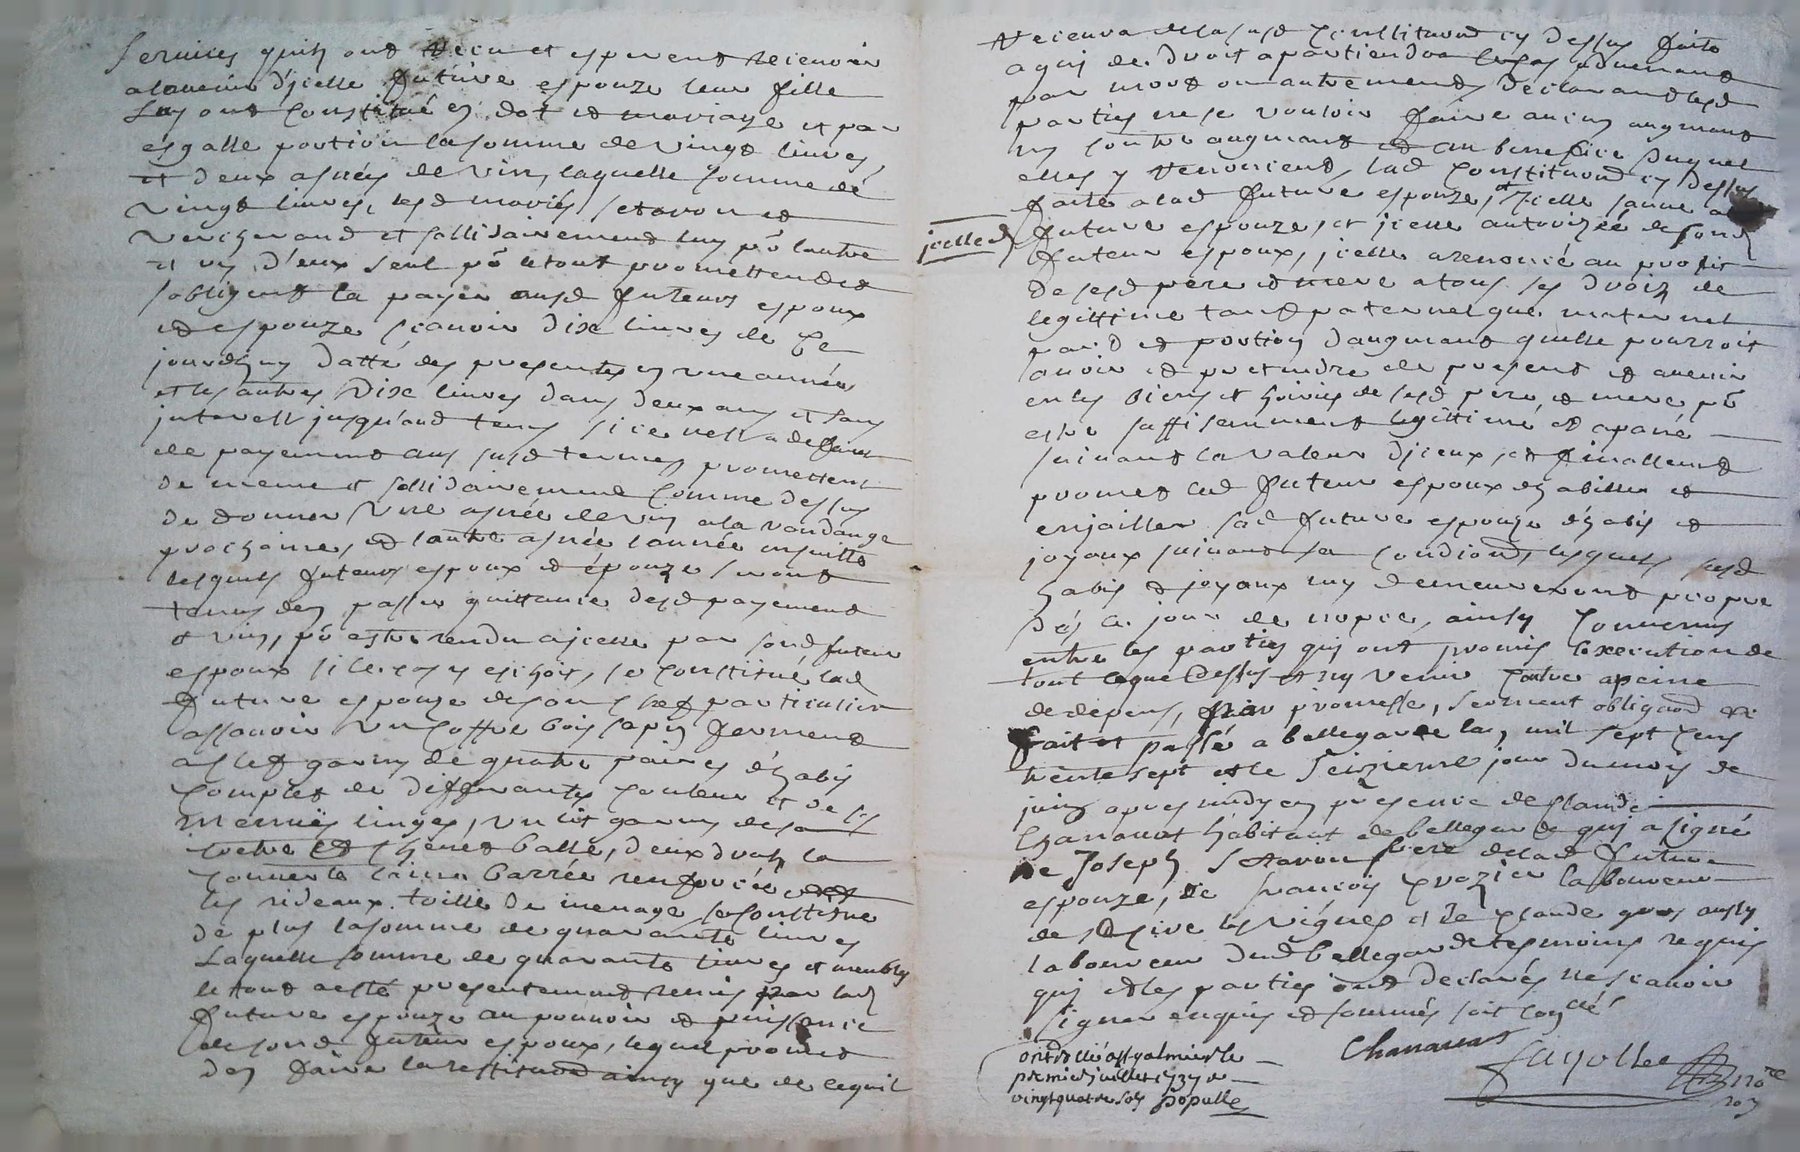 services quils ont receu et esperent recevoir
alavenir d'jcelle future espouze leur fille
Luy ont constitué en dot et mariage et par
esgalle portion lasomme de vingt livres
et deux asnéés de vin, laquelle somme de
vingt livres, lesd mariés
et sollidairement lun pō lautre
et un d'eux seul pō letout promettent et
sobligent la payer ausd futeurs espoux
et espouze scavoir dixe livres de ce
jourdhuy datte des presentes en une année
et les autres Dixe livres dans deux ans et sans
interest jusquaud temps si ce nest a deffaut
de payement aus susd termes promettent
de meme et sollidairement comme dessus
de donner une asnée de vin ala vandange
prochaine, et lautre asnée lannée ensuitte
lesquels futeurs espoux et épouze seront
tenus den passer quittance desd payement
et vin, pō estre rendu a jcelle par sond futeur
espoux si le cas y eschoit, se constitue lad
future espouze de son chef particulier
assavoir un coffre bois sapin fermant
a clef garny de quatre paires d'habis
complet de differantes couleur et de ses
menues linges, un lit garny de sa
coetre et balle, deux draps la
couverte laine barrée
les rideaux toille de menage se constitue
de plus lasomme de quarante livres
Laquelle somme de quarante livres et meubles
le tout a esté presentement remis par lad
future espouze au pouvoir et puissance
de sond futeur espoux, lequel promet
den faire la restitution ainsy que de cequil
recevra de la susd constitution cy dessus faite
a qui de droit apartiendra le cas advenant
par mort ou autrement, Declarant lesd
parties ne se vouloir faire aucun augment
ny contre augment et au benefice duquel
elles y renoncent, lad constitution cy dessus
faite a lad future espouze, et jcelle
jcelled
future espouze, et jcelle autorizée de sond
futeur espoux, jcelle a renoncé au profit
de sesd pere et mere a tous ses droits de
legittime tant paternel que maternel
part et portion d'augment quelle pourroit
avoir et pretendre de present et avenir
en les biens et hoiries de sesd pere et mere pō
estre suffisemment legittimé et apané
suivant la valeur d'jceux, et finallement
promet led futeur espoux d'habiller et
enjailler sad future espouze d'habis et
joyaux suivant sa condition, lesquels susd
habis et joyaux luy demeureront propre
dés le jour de nopce, ainsy convenus
entre les parties qui ont promis l'execution de
tout ceque dessus et ny venir contre apeine
de depens, par promesse, serment obligaōn &
fait et passé a bellegarde lan mil sept cens
trente sept et le seizieme jour du mois de
juin apres midy en presence de Claude
Chanavat habitant de bellegarde qui a signé
de Joseph frere delad future
espouze, de francois laboureur
de et de Claude gros aussy
laboureur dud bellegarde tesmoins requis
qui et les parties ont declarés ne scavoir
signer enquis et sommés
Chanavat
premier juillet 1737
vingt quatre sols Populle
Fayolle